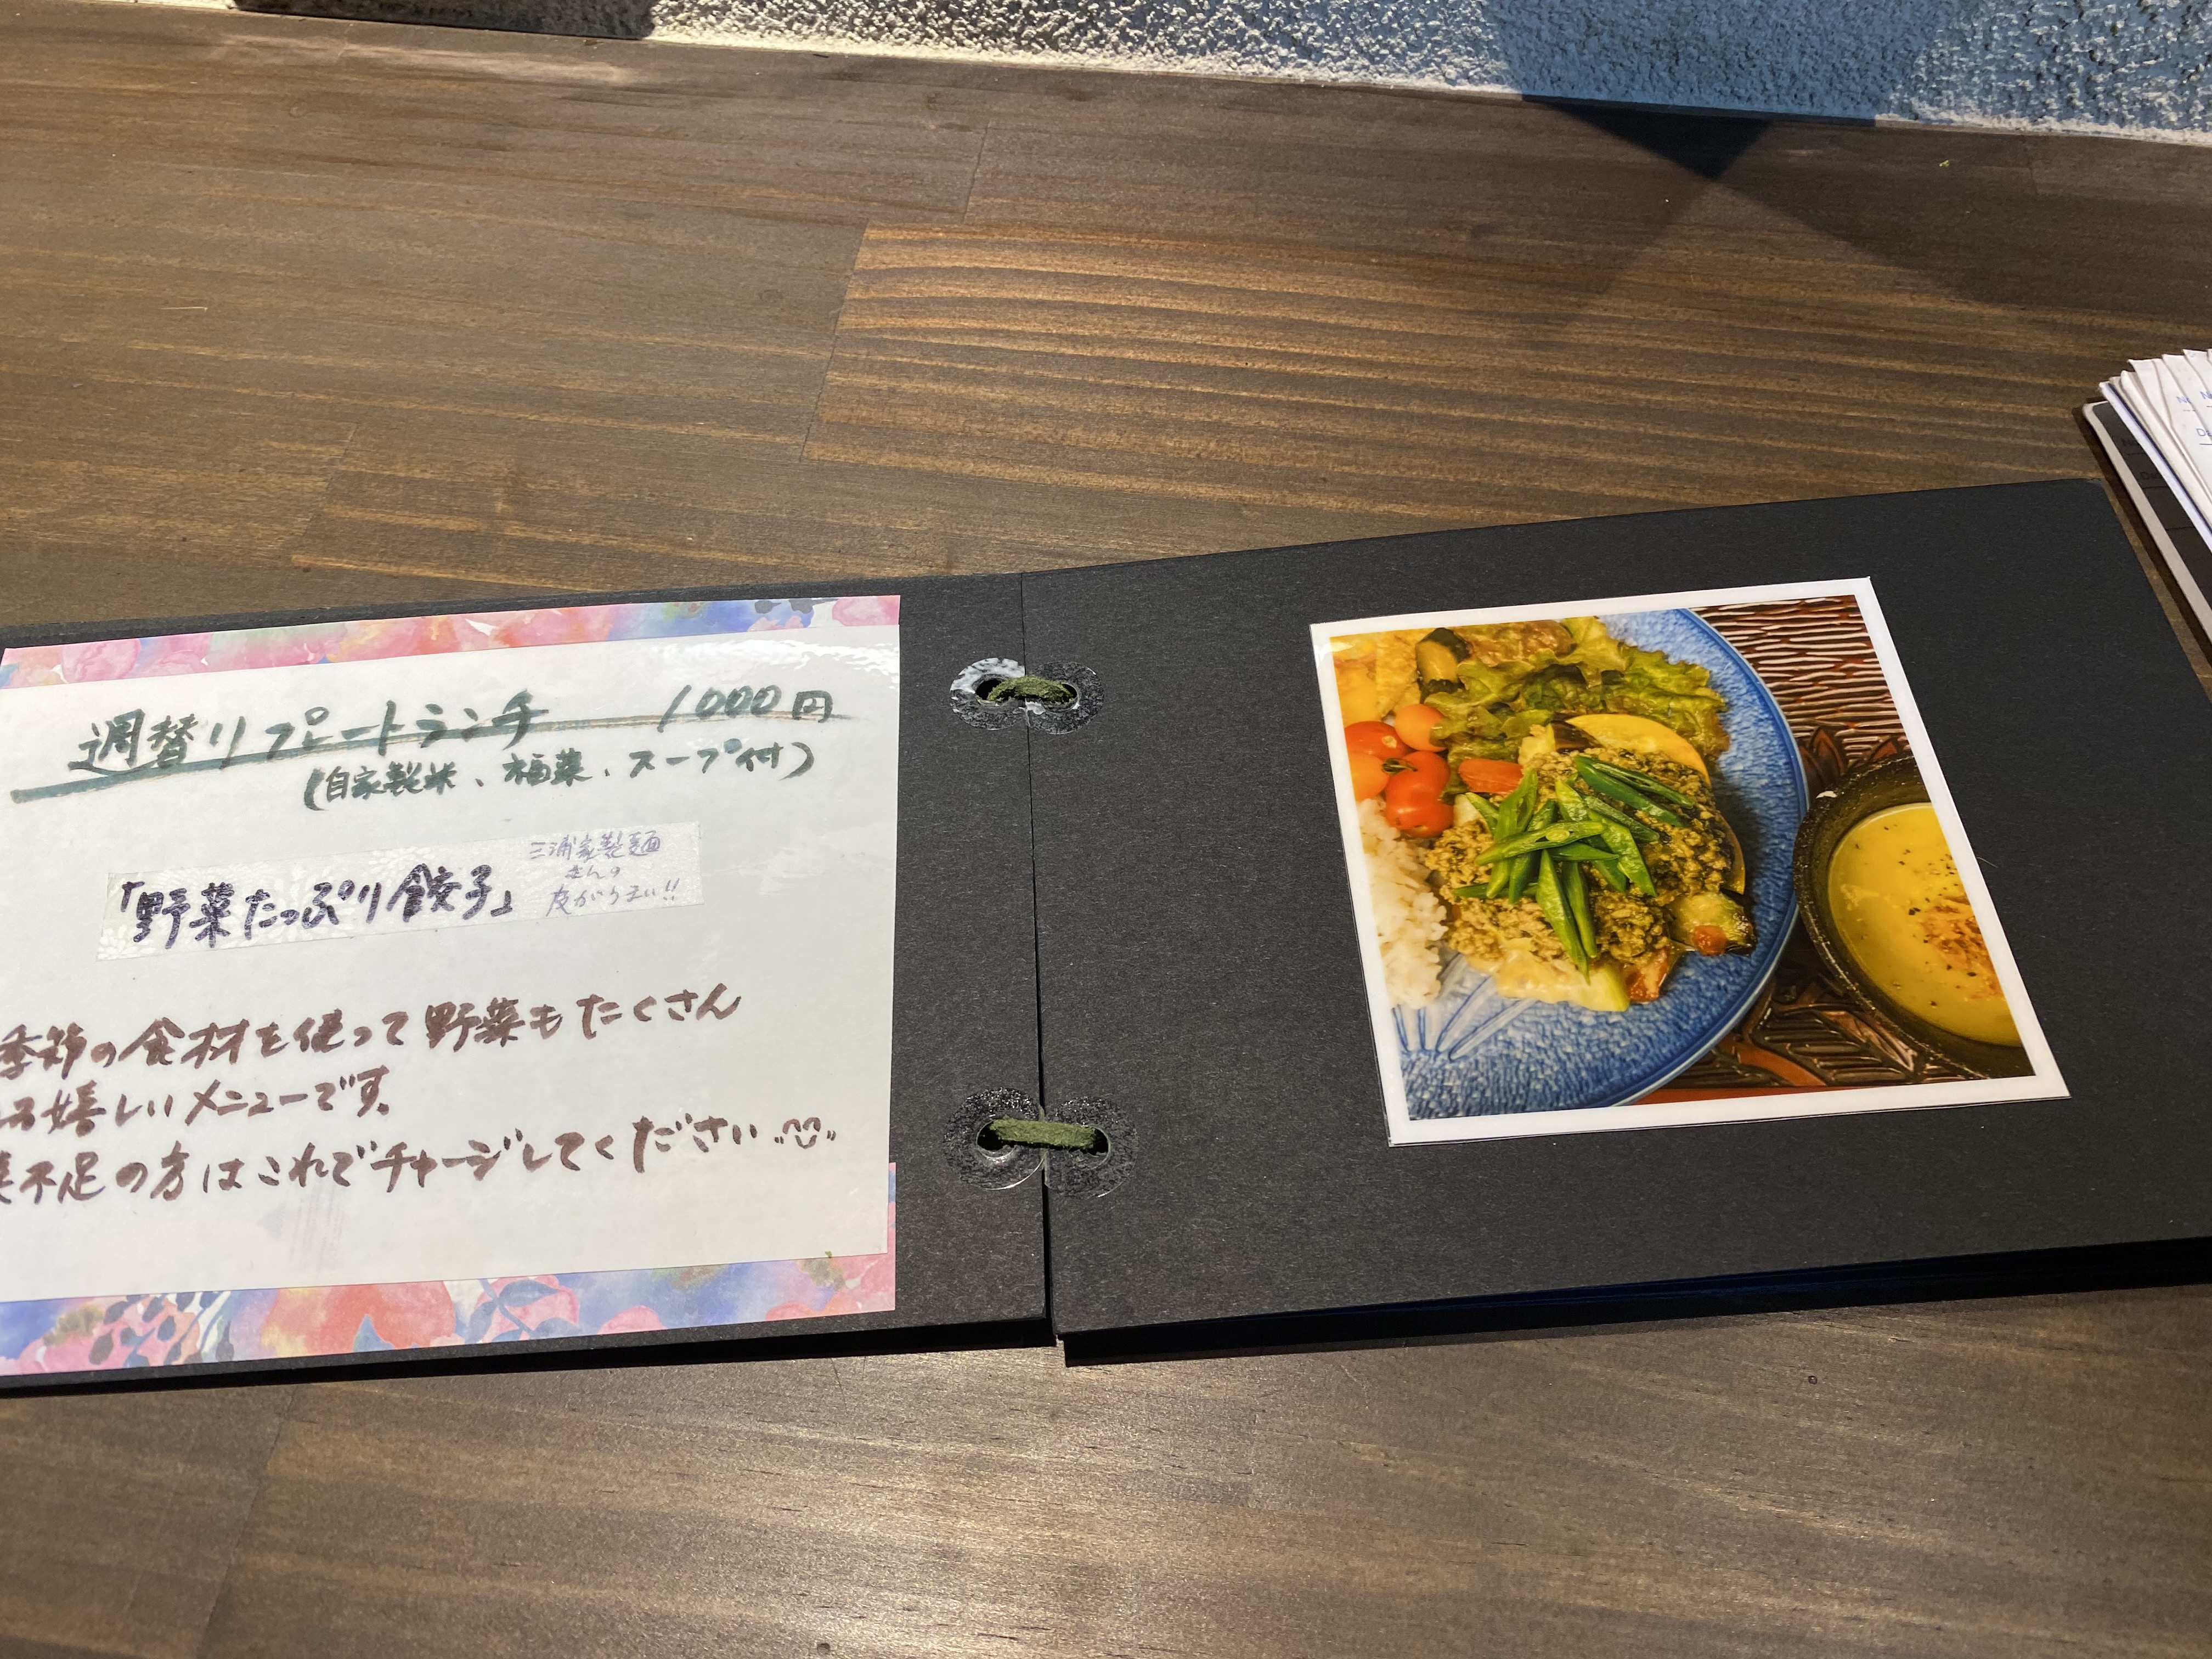 週替りプレートランチ 1000円
(自家製米、福菜、スープ付)
「野菜たっぷり餃子」
三浦家製麺
さんの
皮がうまい!!
季節の食材を使って野菜もたくさん
嬉しいメニューです。
不足の方はこれでチャージしてください